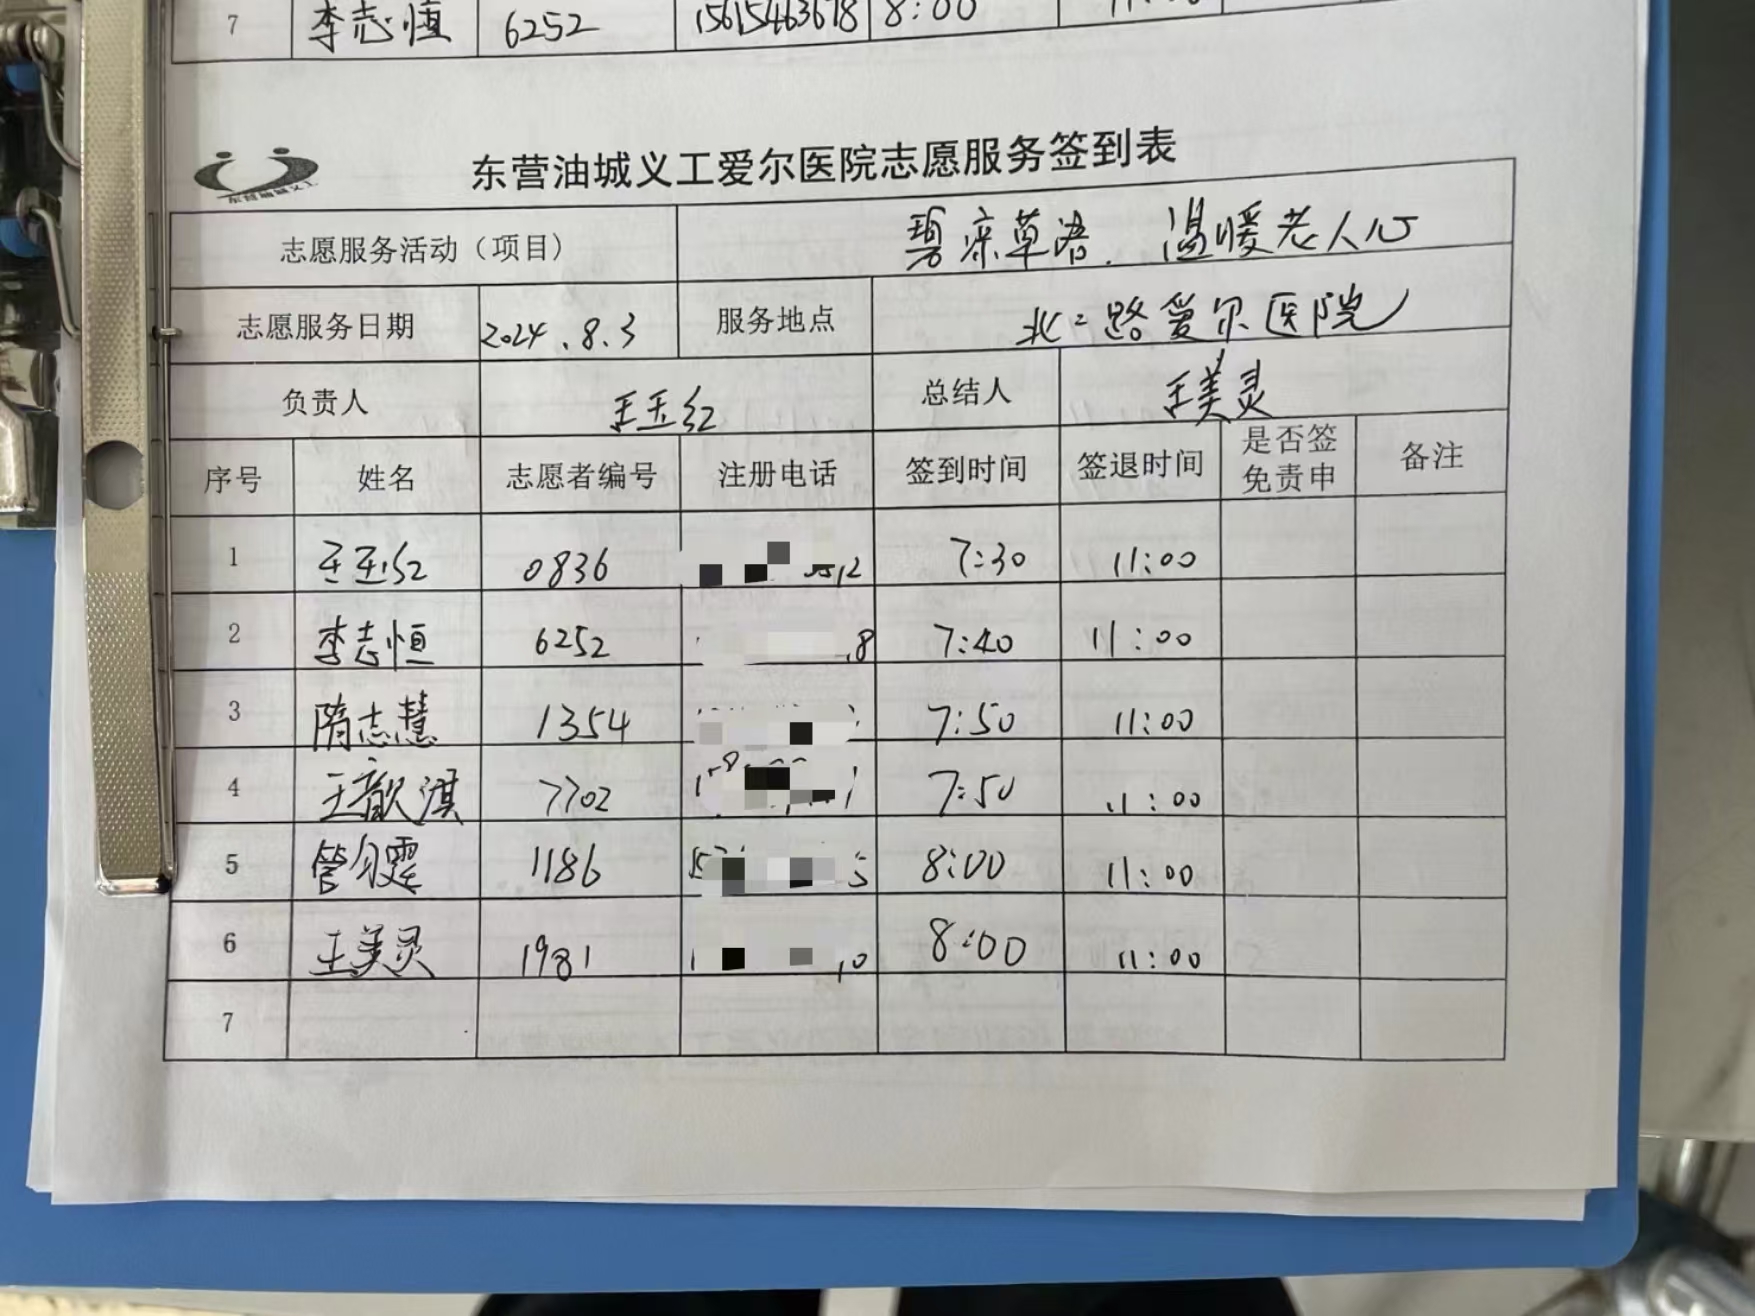 7 李志恒 6252 15615463678 8:00
东营油城义工爱尔医院志愿服务签到表
东营油城义工
志愿服务活动（项目） 碧 草 . 温暖老人心
志愿服务日期 2024.8.3 服务地点 北二路爱尔医院
负责人 王玉红 总结人 王美灵
序号 姓名 志愿者编号 注册电话 签到时间 签退时间 是否签免责申 备注
1 王玉红 0836 7:30 11:00
2 李志恒 6252 8 7:40 11:00
3 隋志慧 1354 7:50 11:00
4 王歆淇 7702 7:50 11:00
5 管 霞 1186 5 8:00 11:00
6 王美灵 1981 8:00 11:00
7